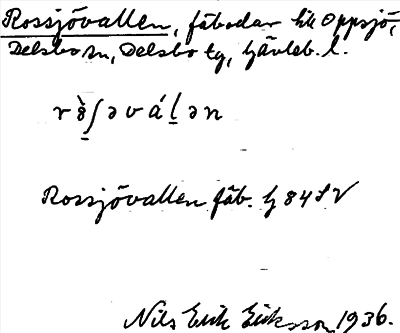 Rossjövallen, fäbodar till Oppsjö,
Delsbo sn, Delsbo tg, Gävleb. l.
Rossjövallen fäb. G 84 SV
Nils Erik Eriksson 1936.